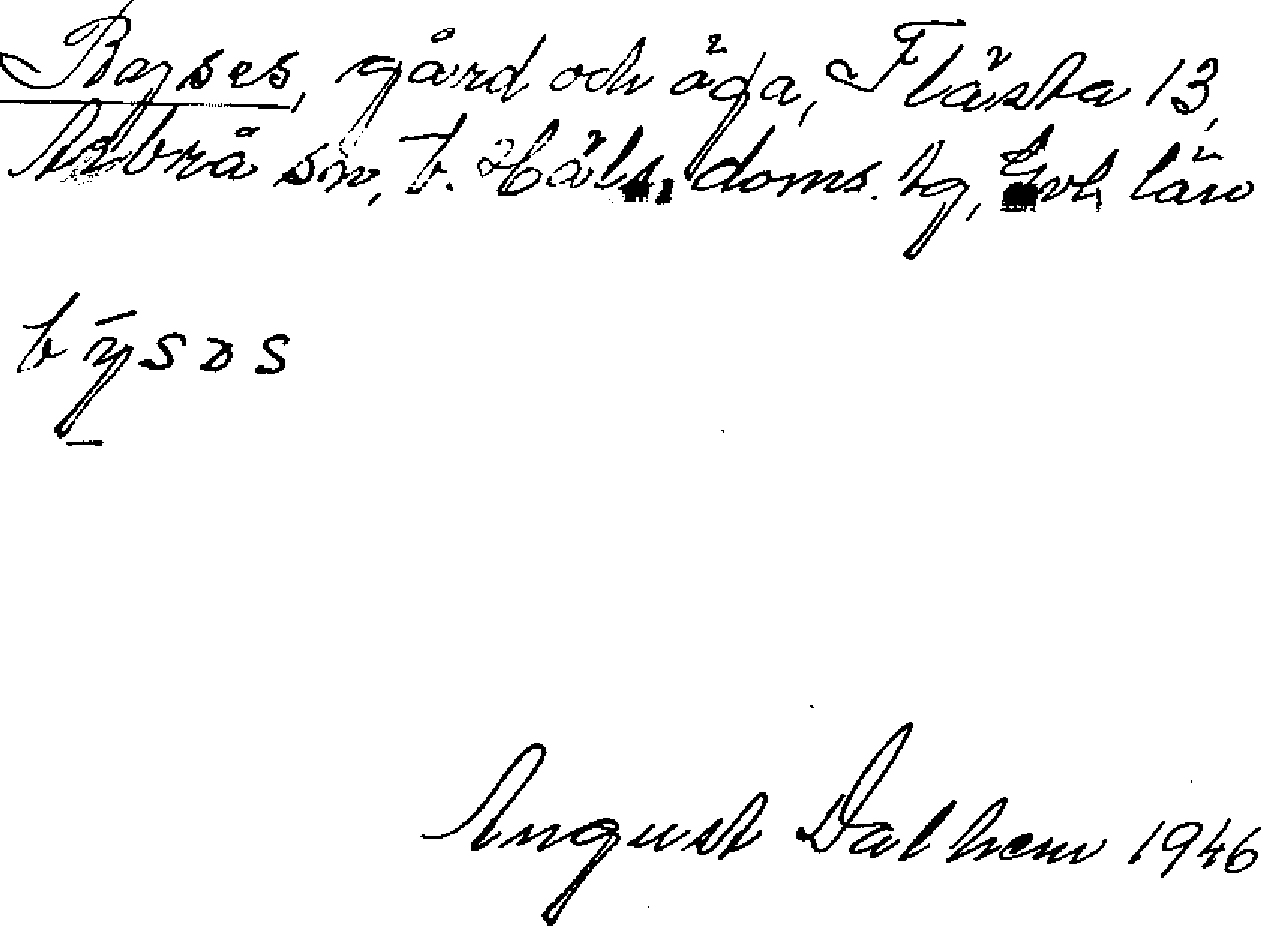 Bojses, gård och äga, Flästa 13,
Arbrå sn, V. Häls. doms. tg, Gvl. län
August Dalhem 1946